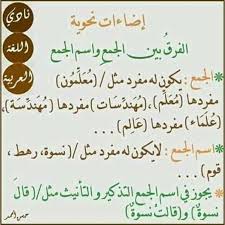 نادي
اللغة
العربية
إضاءات نحوية
الفرق بين الجمع واسم الجمع
الجمع : يكون له مفرد مثل/ (معلّمون)
مفردها (معلّم)، (مهندسات) مفردها (مهندسة)،
(علماء) مفردها (عالم) ...
اسم الجمع : لايكون له مفرد مثل/ (نسوة، رهط،
قوم) ...
يجوز في اسم الجمع التذكير والتأنيث مثل/ (قالَ
نسوةٌ) و (قالتْ نسوةٌ)